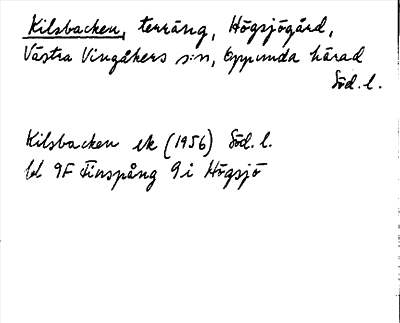 Kilsbacken, terräng, Högsjögård,
Västra Vingåkers s:n, Oppunda härad
Söd. l.
Kilsbacken ek (1956) Söd. l.
bl 9F Finspång 9i Högsjö